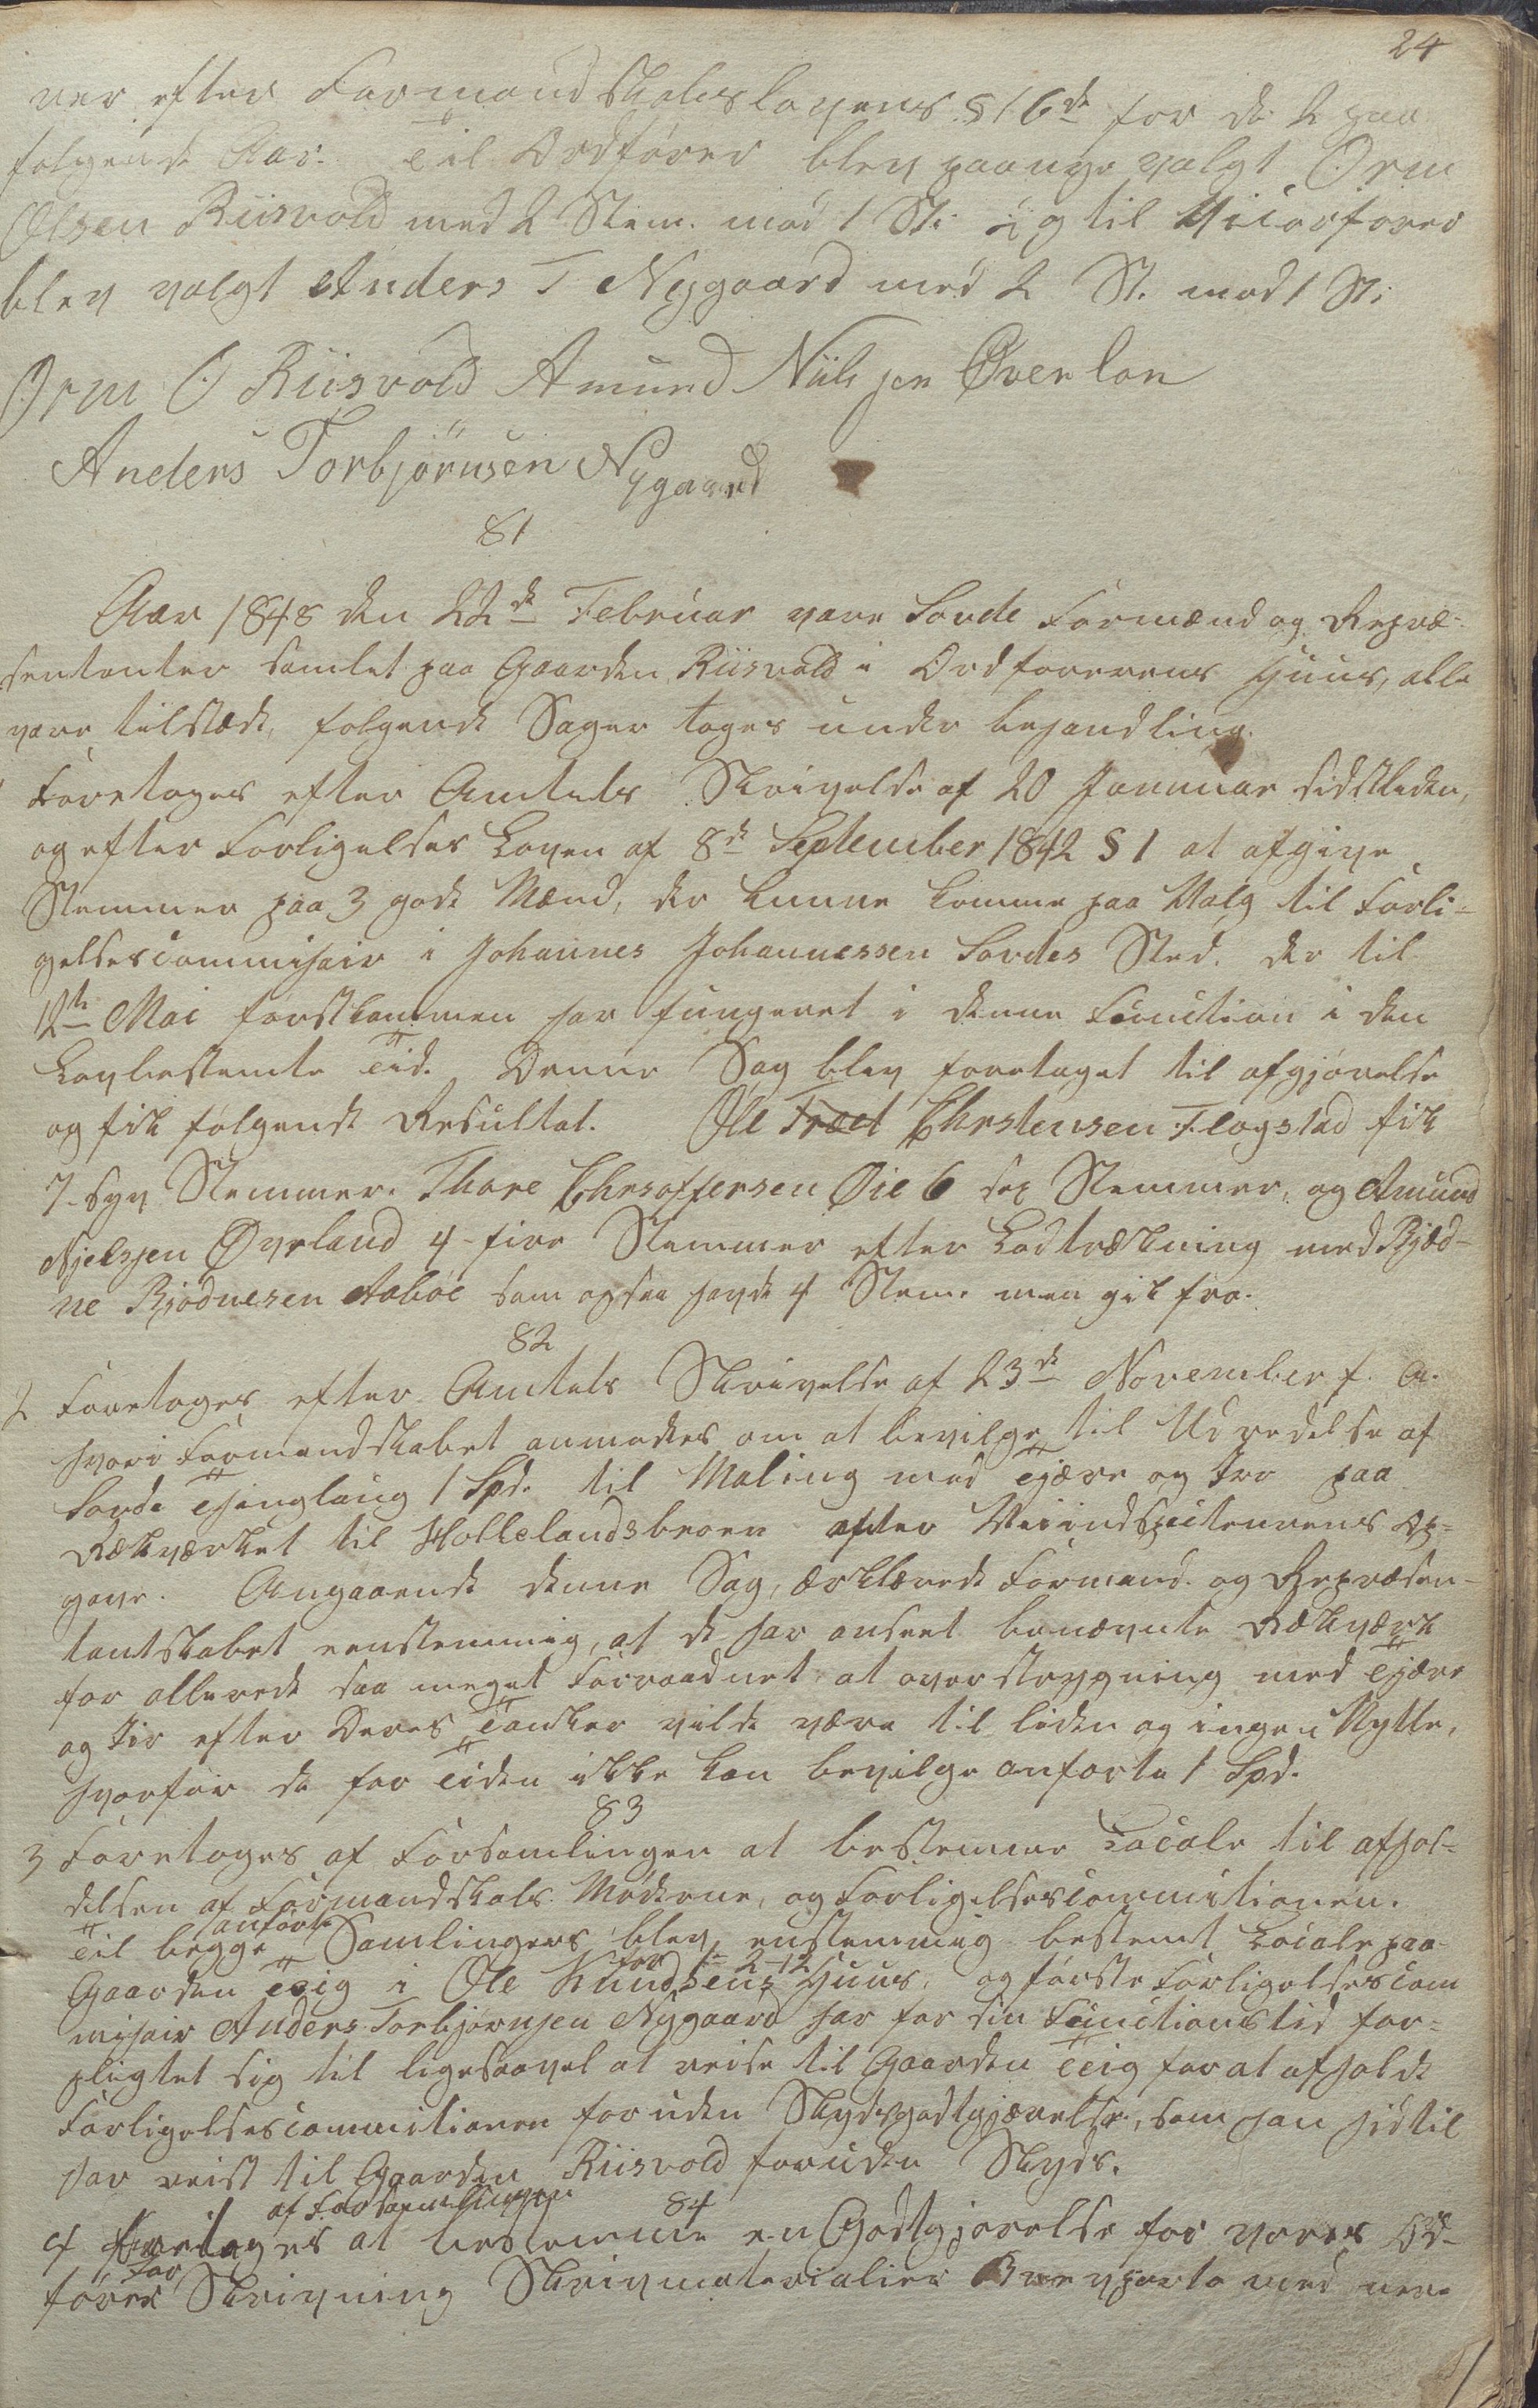 24
ner efter Formandskabslovens § 16de for de 2 paa
følgende Aar. Til Ordfører blev paanye valgt Orm
Olsen Riisvold med 2 Stem. mod 1 St: og til Viceorfører
blev valgt Anders T Nygaard med 2 St. mod 1 St:
Orm O Riisvold Amund Niilsen Øverlan
Anders Torbjörnsen Nygaard
81
Aar 1848 den 22de Februar vare Sovde Formænd og Repræ-
sentanter samlet paa Gaarden Riisvold i Ordførerens Huus, alle
vare tilstæde, følgende Sager toges under behandling.
Foretoges efter Amtets Skrivelse af 20 Januar sidstleden,
og efter Forligelses Loven af 8de September 1842 § 1 at afgive
Stemmer paa 3 gode Mænd, der kunne komme paa Valg til Forli-
gelsescommisair i Johannes Johannessen Sovdes Sted, der til
12te Mai førstkommen har fungeret i denne Function i den
Lovbestemte Tid. Denne Sag blev foretaget til afgjørelse
og fik følgende Resultat. Ole Træet Chrstensen Flogstad fik
7 syv Stemmer. Thore Chrsoffersen Øie 6 sex Stemmer, og Amund
Njelsjen Øvrland 4 fire Stemmer efter Lodtrækning med Bjød-
ne Bjödnesen Aaböe som ogsaa havde 4 Stem. men gik fra.
82
2 Foretoges efter Amtets Skrivelse af 23de November f. A.
hvori Formandskabet anmodes om at bevilge til Udredelse af
Sovde Thinglaug 1 Spd. til Maling med Tjære og Iro paa
Rækværket til Hollelandsbroen efter Veiindspecteurens Op-
gave. Angaaende denne Sag, ærklærede Formand- og Repræsen-
tantskabet eenstemmig, at de har anseet benævnte Rækværk
for allerede saa meget Forraadnet at overstrygning med Tjære
og Iir efter Deres Tanker vilde være til liden og ingen Nytte,
hvorfor de for Tiden ikke kan bevilge anførte 1 Spd.
83
3 Foretoges af Forsamlingen at bestemme Locale til afhol-
delsen af Formandskabs Møderne, og Forligelsescommitionen.
Til begge anførte Samlingers blev enstemmig bestemt Locale paa
Gaarden Teig i Ole Knudsens Huus, for 1 - 2-12 og første Forligelsescom
misair Anders Torbjørnsen Nygaard har for sin Functionstid for-
pligtet sig til ligesaavel at reise til Gaarden Teig for at afholde
Forligelsescommitionen foruden Skydsgodtgjørelse, som han hidtil
har reist til Gaarden Riisvold foruden Skyds.
84
4 Foretoges af Forsamlingen at bestemme en Godtgjørelse for vores Ord-
fører for Skrivning Skrivmaterialier Brevporto med mere